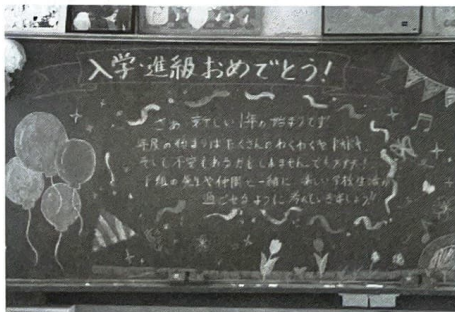 入学・進級おめでとう!
さぁ 新しい1年の始まりです
年度の始まりはたくさんのわくわくやドキドキ、
そして不安もあるかもしれません。でも大丈夫!
1組の先生や仲間と一緒に 楽しい学校生活が
過ごせるように がんばっていきましょう!!